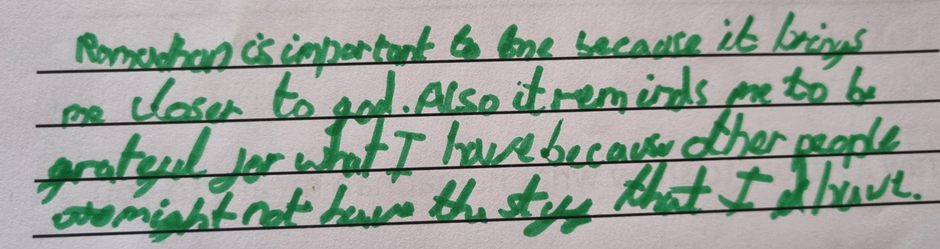 Ramadhan is important to me because it brings
me closer to god. Also it reminds me to be
grateful for what I have because other people
might not have the stuff that I have.